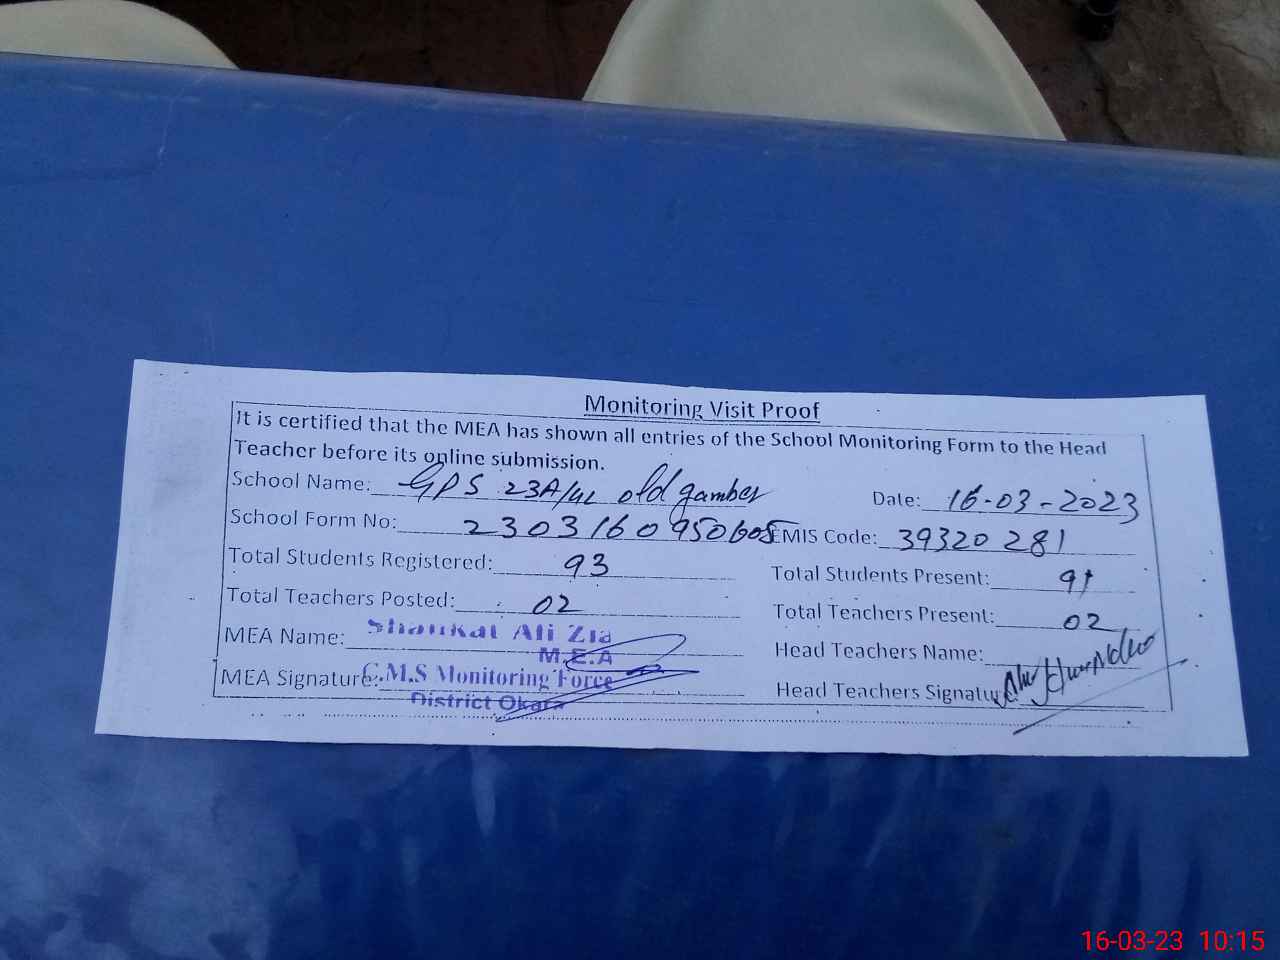 Monitoring Visit Proof
It is certified that the MEA has shown all entries of the School Monitoring Form to the Head
Teacher before its online submission.
School Name: GPS 23A/4L old gamber Date: 16-03-2023
School Form No: 2303160950605 EMIS Code: 39320281
Total Students Registered: 93 Total Students Present: 91
Total Teachers Posted: 02 Total Teachers Present: 02
MEA Name: Shaukat Ali Zia Head Teachers Name:
M.E.A
MEA Signature: C.M.S Monitoring Force Head Teachers Signatu
District Okara
16-03-23 10:15